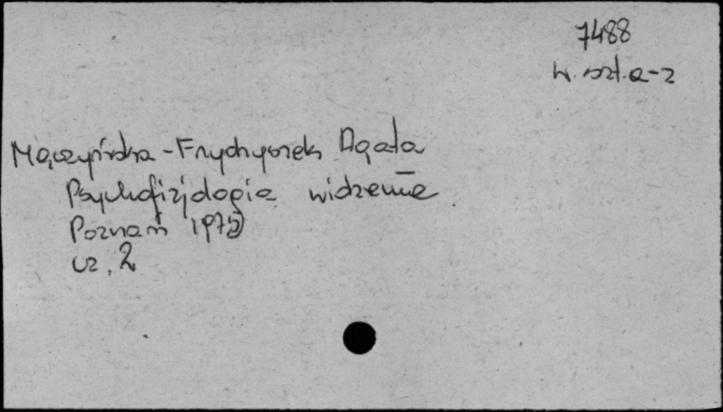 7488
w. szt. a-z
Mączyńska-Frydryszek Agata
Psychofizjologia widzenia
Poznań 1975
cz. 2